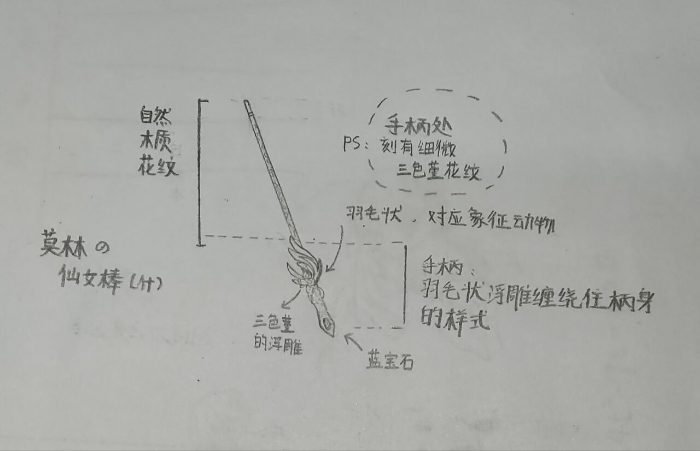 自然
木质
花纹
手柄处
PS：刻有细微
三色堇花纹
羽毛状，对应象征动物
莫林の
仙女棒（什）
手柄：
羽毛状浮雕缠绕住柄身
的样式
三色堇
的浮雕
蓝宝石